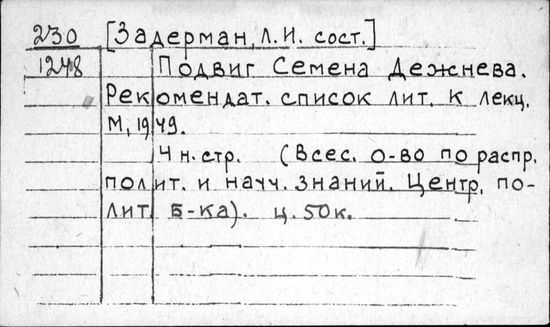 230 [Задерман, Л.И. сост.]
1248 Подвиг Семена Дежнева.
Рекомендат. список лит. к лекц.
М, 1949.
4 н.стр. (Всес. о-во по распр.
полит. и научн. знаний. Центр. по-
лит. Б-ка). ц. 50к.